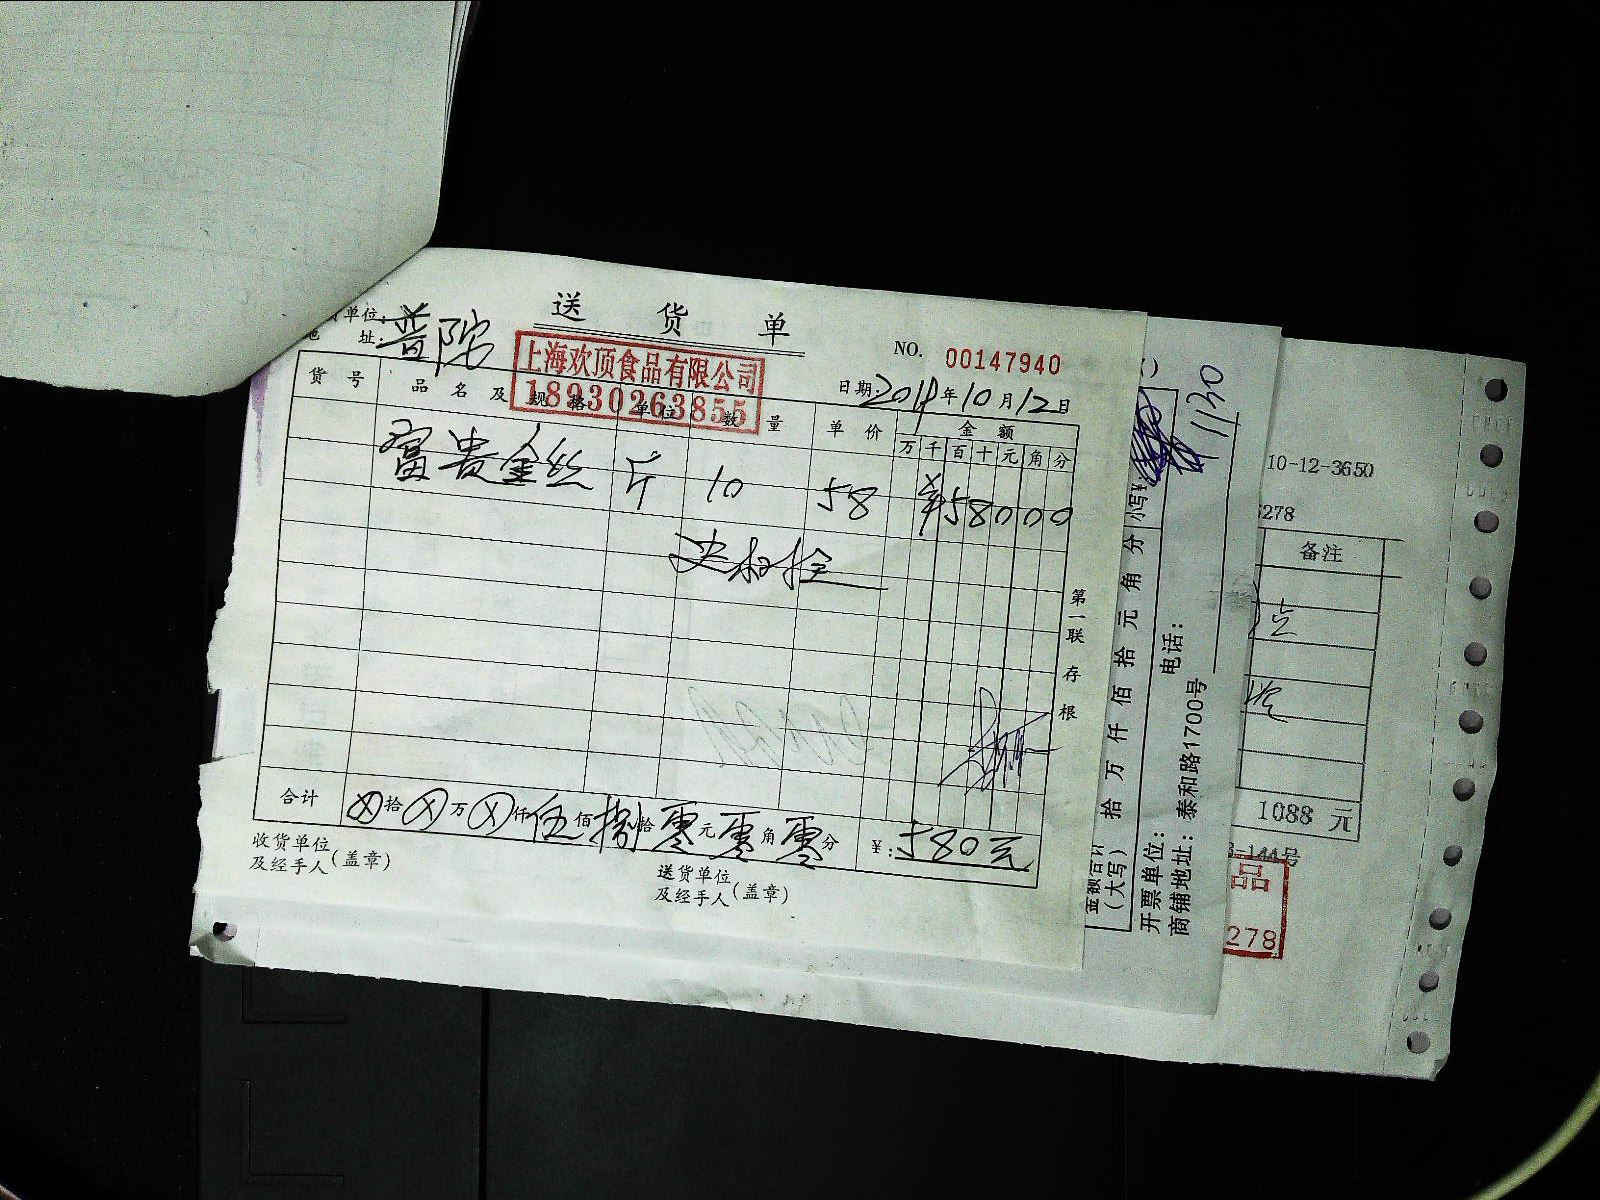 送货单
单位:
址:普陀
上海欢顶食品有限公司
18930263855
NO. 00147940
日期:年10月12日
货号 品名及规格 单位 数量 单价 金额
万千百十元角分
富贵金丝 斤 10 58 ¥58000
第一联存根
合计 ⊗拾⊗万⊗仟伍佰捌拾零元零角零分 ¥:580元
收货单位
及经手人(盖章)
送货单位
及经手人(盖章)
1130
小写¥:
金额合计
(大写) 拾万仟佰拾元角分
开票单位: 电话:
商铺地址:泰和路1700号
10-12-3650
278
备注
1088 元
3-144号
品
278